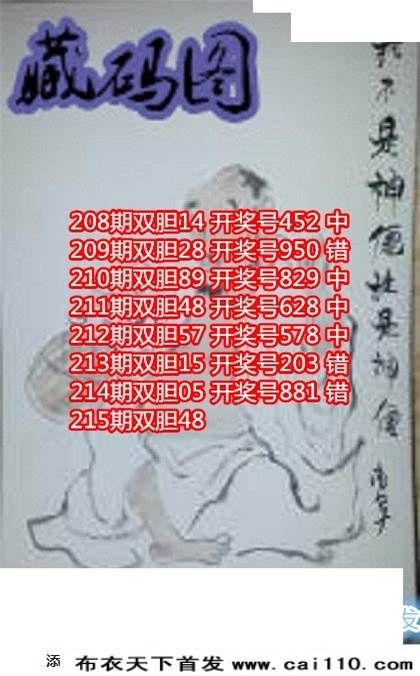 藏码图
我不是神僊谁是神僊
208期双胆14 开奖号452 中
209期双胆28 开奖号950 错
210期双胆89 开奖号829 中
211期双胆48 开奖号628 中
212期双胆57 开奖号578 中
213期双胆15 开奖号203 错
214期双胆05 开奖号881 错
215期双胆48
发
添 布衣天下首发 www.cai110.com